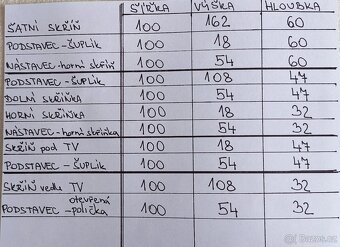 ŠÍŘKA VÝŠKA HLOUBKA
ŠATNÍ SKŘÍŇ 100 162 60
PODSTAVEC-ŠUPLIK 100 18 60
NÁSTAVEC-horní skříň 100 54 60
PODSTAVEC-ŠUPLIK 100 108 47
DOLNÍ SKŘÍŇKA 100 54 47
HORNÍ SKŘÍŇKA 100 18 32
NÁSTAVEC-horní skříňka 100 54 32
SKŘÍŇ pod TV 100 18 47
PODSTAVEC-ŠUPLIK 100 54 47
SKŘÍŇ vedle TV 100 108 32
otevřená
PODSTAVEC-polička 100 54 32
Bazoš.cz